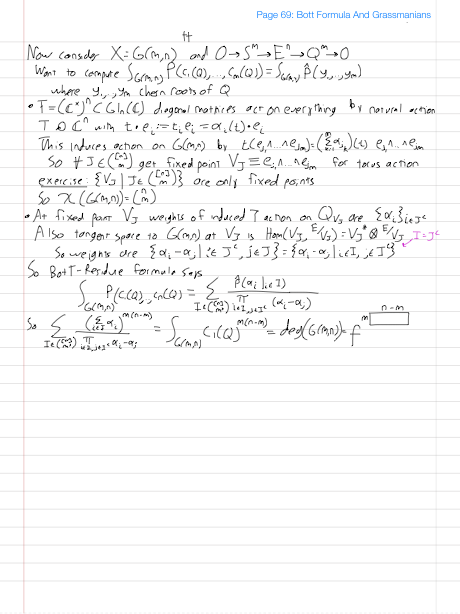 Page 69: Bott Formula And Grassmanians
Now consider X=G(m,n) and O→S^m→E^n→Q^m→O
Want to compute ∫_{G(m,n)} P(c_1(Q),...,c_m(Q)) = ∫_{G(m,n)} P̂(y_1,...,y_m)
where y_1,...,y_m chern roots of Q
• T=(ℂ^×)^n ⊂ Gl_n(ℂ) diagonal matrices act on everything by natural action
T ↻ ℂ^n with t•e_i := t_i e_i = α_i(t)•e_i
This induces action on G(m,n) by t(e_{j_1}∧...∧e_{j_m}) = (Σ α_{j_k})(t) e_{j_1}∧...∧e_{j_m}
So ∀ J∈([n] m) get fixed point V_J ≡ e_{j_1}∧...∧e_{j_m} for torus action
exercise: {V_J | J∈([n] m)} are only fixed points
So χ(G(m,n)) = (n m)
• At fixed point V_J weights of induced T action on Q_{V_J} are {α_i}_{i∈J^c}
Also tangent space to G(m,n) at V_J is Hom(V_J, E/V_J) = V_J^* ⊗ E/V_J I=J^c
So weights are {α_i-α_j | i∈J^c, j∈J} = {α_i-α_j | i∈I, j∈I^c}
So Bott-Residue formula says
∫_{G(m,n)} P(c_1(Q)...c_n(Q)) = Σ_{I∈([n] m)} P̂(α_i|i∈I) / Π_{i∈I, j∈I^c} (α_i-α_j)
So Σ_{I∈([n] m)} (Σ_{i∈I} α_i)^{m(n-m)} / Π_{i∈I, j∈I^c} α_i-α_j = ∫_{G(m,n)} c_1(Q)^{m(n-m)} = deg(G(m,n)) = f^{m □ n-m}